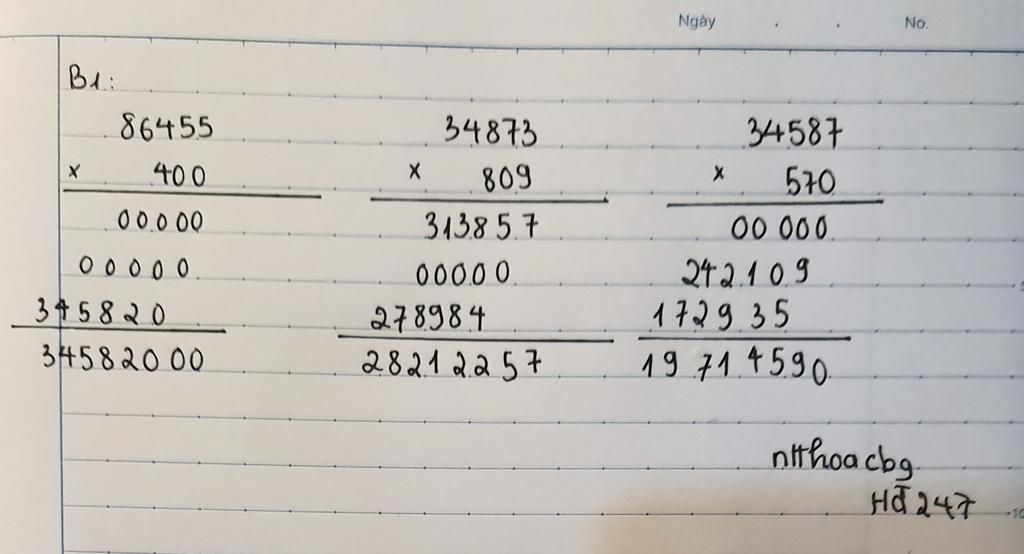 Ngày . . No.
B1:
86455 34873 34587
x 400 x 809 x 570
00000 313857 00000
00000 00000 242109
345820 278984 172935
34582000 28212257 19714590
nHhoacbg
Hđ 247